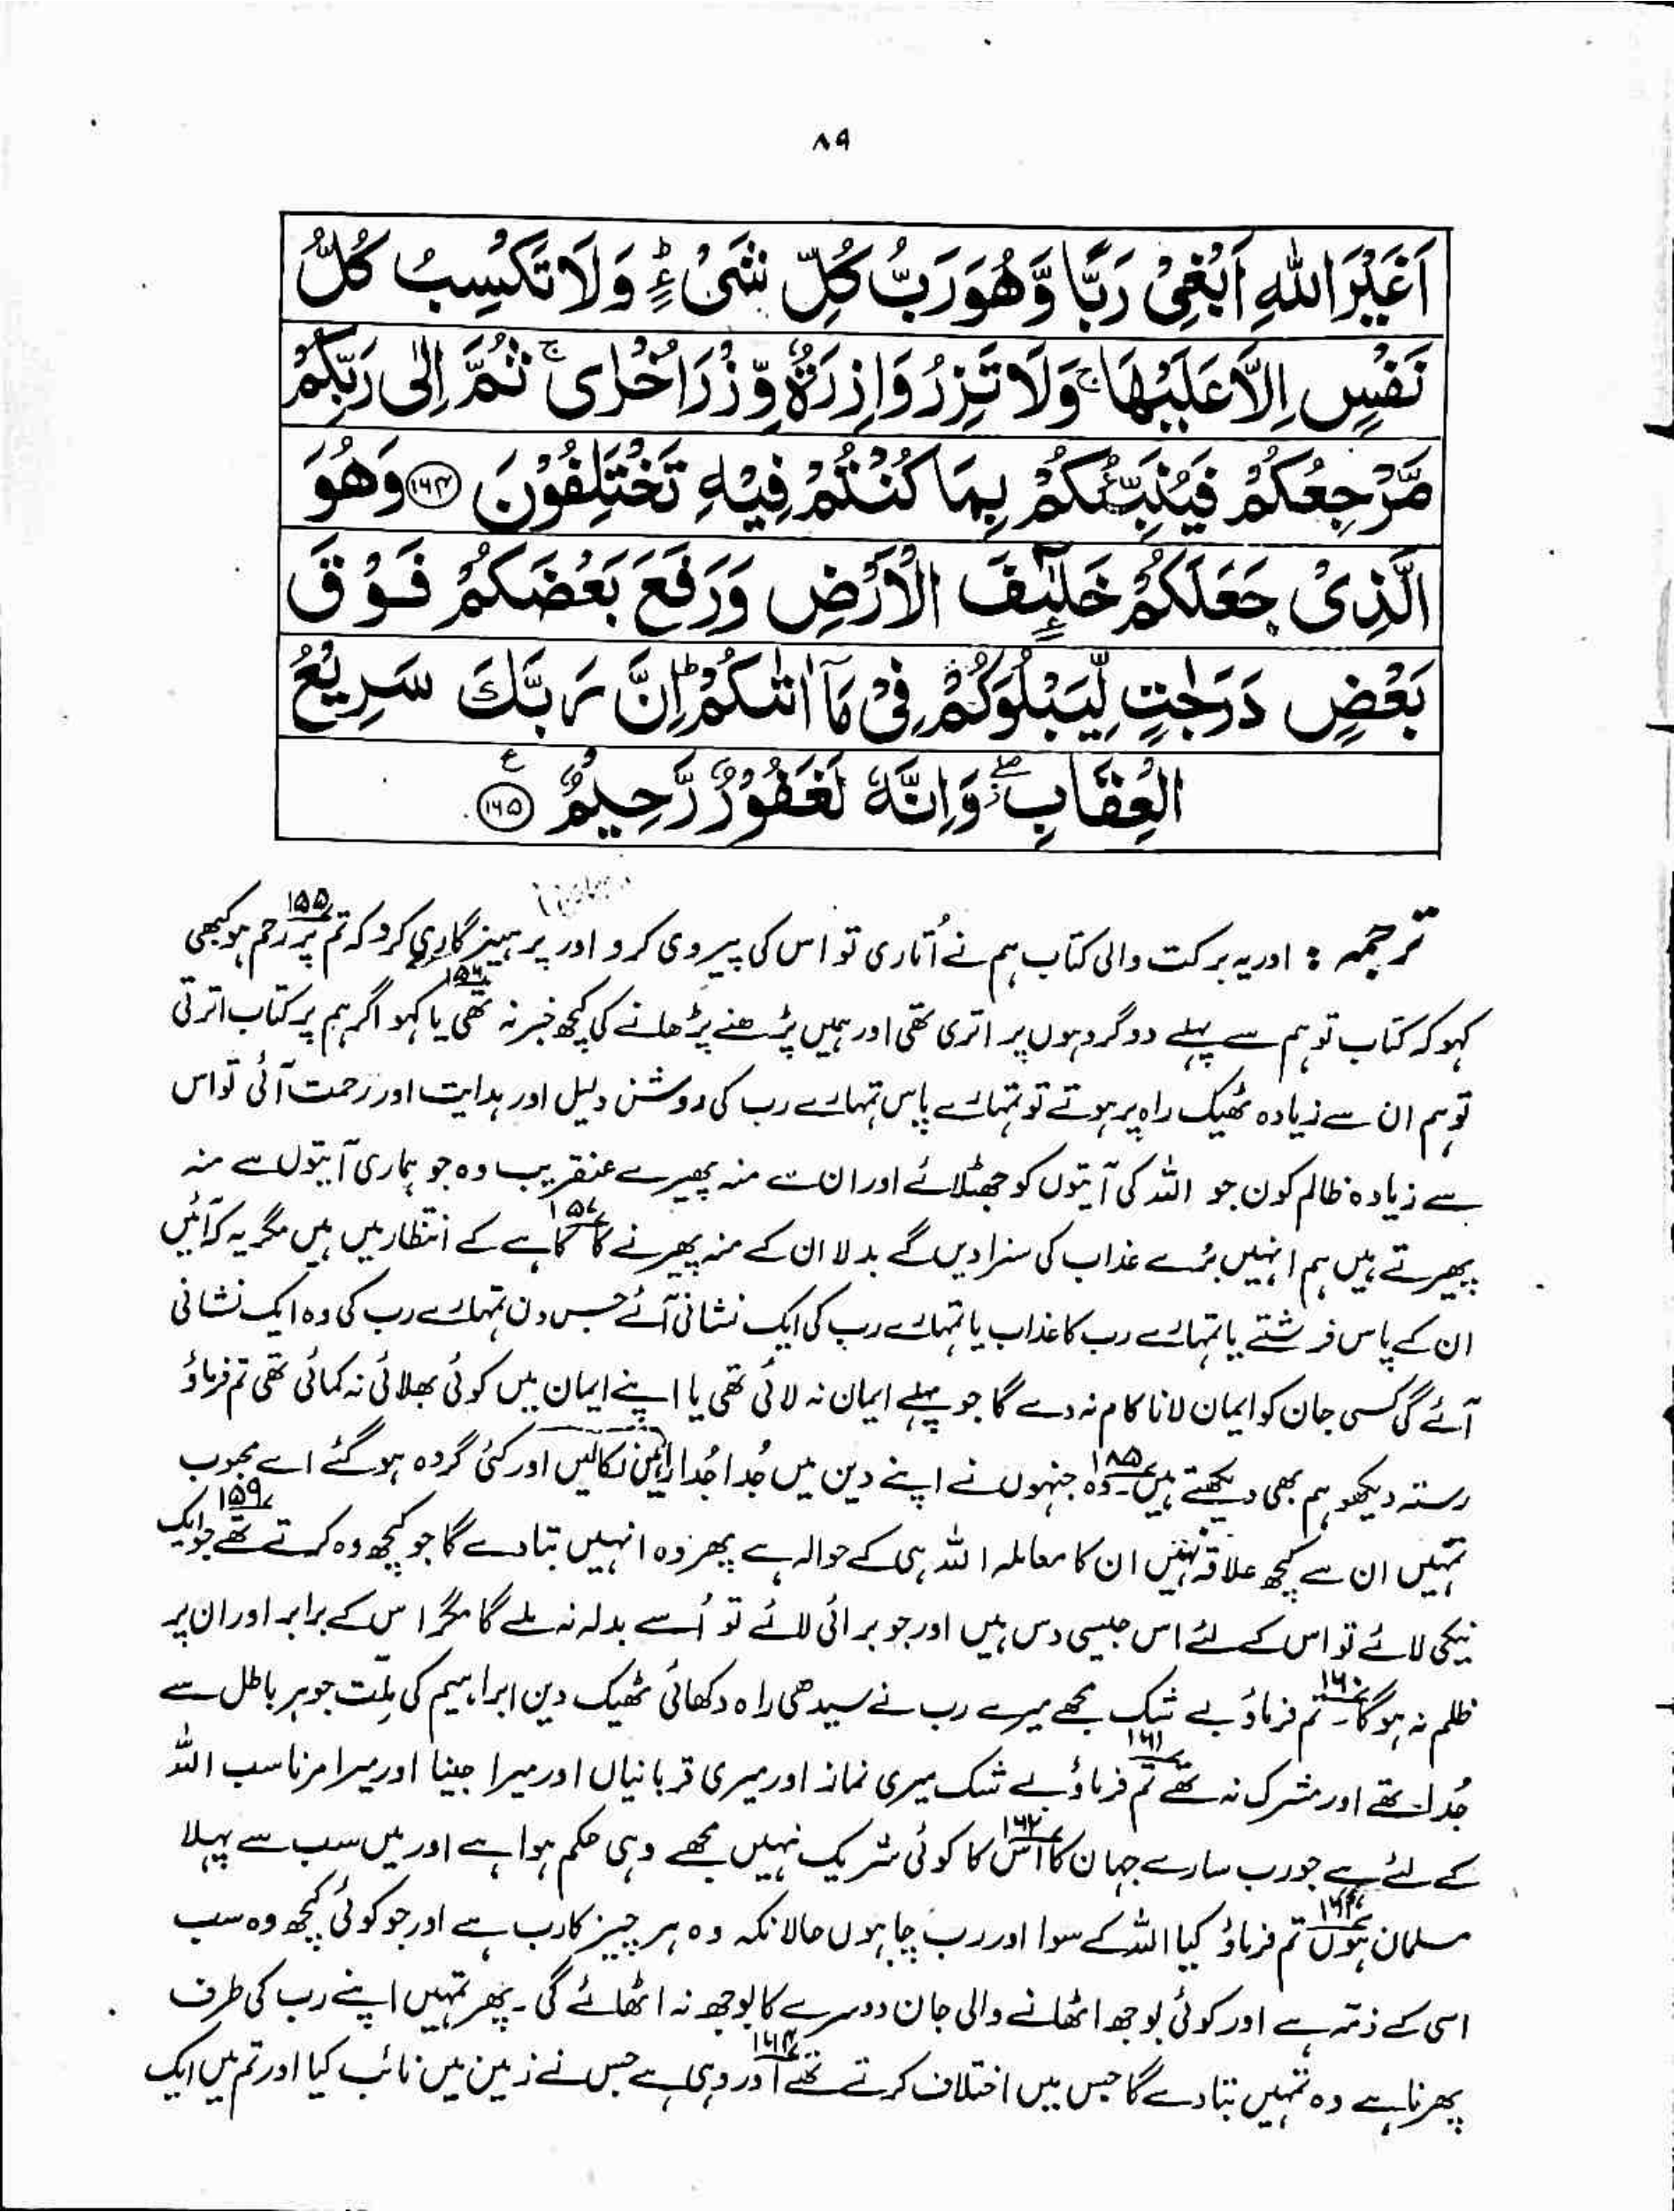 ۸۹
اَغَيْرَ اللّٰهِ اَبْغِيْ رَبًّا وَّهُوَ رَبُّ كُلِّ شَيْءٍ ؕ وَلَا تَكْسِبُ كُلُّ
نَفْسٍ اِلَّا عَلَيْهَا ۚ وَلَا تَزِرُ وَازِرَةٌ وِّزْرَ اُخْرٰى ۚ ثُمَّ اِلٰى رَبِّكُمْ
مَّرْجِعُكُمْ فَيُنَبِّئُكُمْ بِمَا كُنْتُمْ فِيْهِ تَخْتَلِفُوْنَ ﴿۱۶۴﴾ وَهُوَ
الَّذِيْ جَعَلَكُمْ خَلٰٓئِفَ الْاَرْضِ وَرَفَعَ بَعْضَكُمْ فَوْقَ
بَعْضٍ دَرَجٰتٍ لِّيَبْلُوَكُمْ فِيْ مَاۤ اٰتٰىكُمْ ؕ اِنَّ رَبَّكَ سَرِيْعُ
الْعِقَابِ ۖ وَاِنَّهٗ لَغَفُوْرٌ رَّحِيْمٌ ﴿۱۶۵﴾ ع
ترجمہ : اور یہ برکت والی کتاب ہم نے اُتاری تو اس کی پیروی کرو اور پرہیزگاری کرو کہ تم پر رحم ہو ۱۵۵ کبھی
کہو کہ کتاب تو ہم سے پہلے دو گروہوں پر اتری تھی اور ہمیں پڑھنے پڑھانے کی کچھ خبر نہ تھی ۱۵۶ یا کہو اگر ہم پر کتاب اترتی
تو ہم ان سے زیادہ ٹھیک راہ پر ہوتے تو تمہارے پاس تمہارے رب کی روشن دلیل اور ہدایت اور رحمت آئی تو اس
سے زیادہ ظالم کون جو اللہ کی آیتوں کو جھٹلائے اور ان سے منہ پھیرے عنقریب وہ جو ہماری آیتوں سے منہ
پھیرتے ہیں ہم انہیں بُرے عذاب کی سزا دیں گے بدلا ان کے منہ پھیرنے کا ۱۵۷ کاہے کے انتظار میں ہیں مگر یہ کہ آئیں
ان کے پاس فرشتے یا تمہارے رب کا عذاب یا تمہارے رب کی ایک نشانی آئے جس دن تمہارے رب کی وہ ایک نشانی
آئے گی کسی جان کو ایمان لانا کام نہ دے گا جو پہلے ایمان نہ لائی تھی یا اپنے ایمان میں کوئی بھلائی نہ کمائی تھی تم فرماؤ
رستہ دیکھو ہم بھی دیکھتے ہیں۔ ۱۸۵ وہ جنہوں نے اپنے دین میں جُدا جُدا راہیں نکالیں اور کئی گروہ ہو گئے اے محبوب
تمہیں ان سے کچھ علاقہ نہیں ان کا معاملہ اللہ ہی کے حوالہ ہے پھر وہ انہیں بتا دے گا جو کچھ وہ کرتے تھے ۱۵۹ جو ایک
نیکی لائے تو اس کے لئے اس جیسی دس ہیں اور جو برائی لائے تو اُسے بدلہ نہ ملے گا مگر اس کے برابر اور ان پر
ظلم نہ ہوگا۔ ۱۶۰ تم فرماؤ بے شک مجھے میرے رب نے سیدھی راہ دکھائی ٹھیک دین ابراہیم کی ملّت جو ہر باطل سے
جُدا تھے اور مشرک نہ تھے ۱۶۱ تم فرماؤ بے شک میری نماز اور میری قربانیاں اور میرا جینا اور میرا مرنا سب اللہ
کے لئے ہے جو رب سارے جہان کا ۱۶۲ اس کا کوئی شریک نہیں مجھے وہی حکم ہوا ہے اور میں سب سے پہلا
مسلمان ہوں ۱۶۳ تم فرماؤ کیا اللہ کے سوا اور رب چاہوں حالانکہ وہ ہر چیز کا رب ہے اور جو کوئی کچھ وہ سب
اسی کے ذمّہ ہے اور کوئی بوجھ اٹھانے والی جان دوسرے کا بوجھ نہ اٹھائے گی۔ پھر تمہیں اپنے رب کی طرف
پھرنا ہے وہ تمہیں بتا دے گا جس میں اختلاف کرتے تھے ۱۶۴ اور وہی ہے جس نے زمین میں نائب کیا اور تم میں ایک